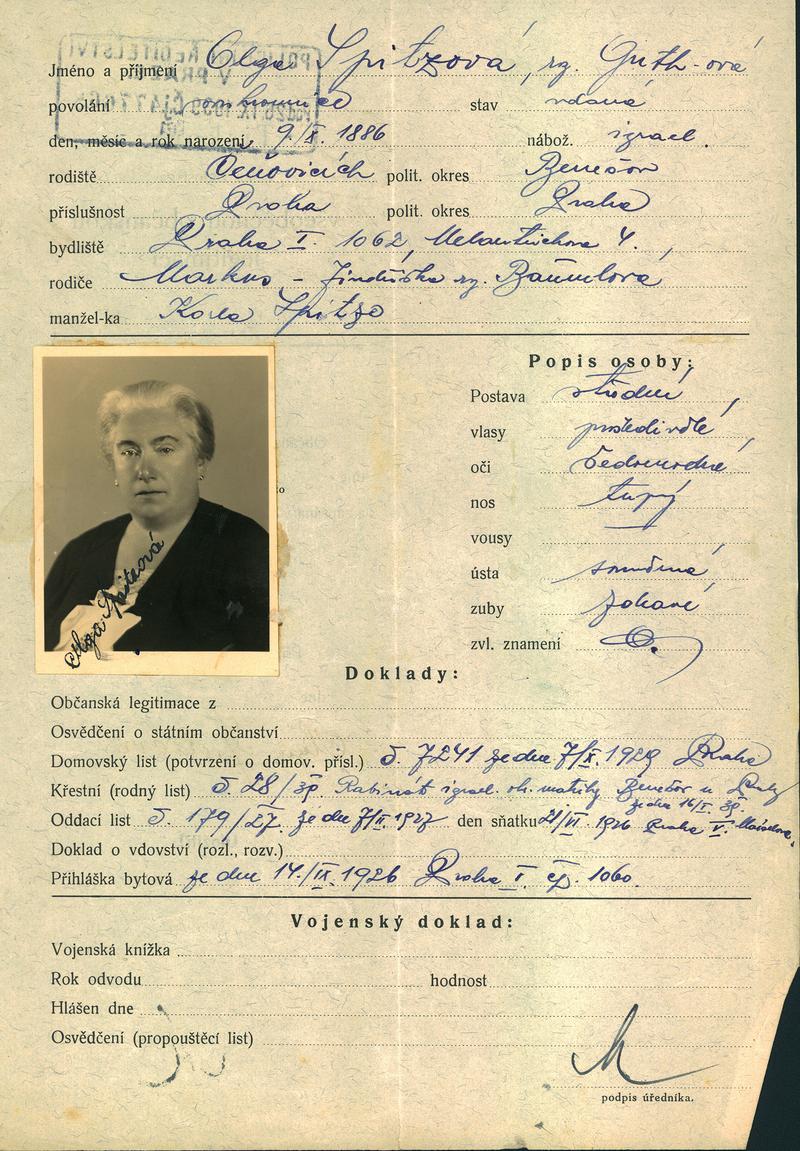 Jméno a příjmení Olga Spitzová, rz. Guth-ová
povolání stav vdaná
den, měsíc a rok narození 9./X. 1886 nábož. izrael.
rodiště polit. okres Benešov
příslušnost Praha polit. okres Praha
bydliště Praha I. 1062, Melantrichova 4.,
rodiče Markus - Jindřiška rz. Bäumlová
manžel-ka Karla Spitze
Popis osoby:
Postava střední,
vlasy prošedivělé,
oči šedomodré,
nos tupý,
vousy —
ústa souměrná,
zuby zdravé,
zvl. znamení
Olga Spitzová
Doklady:
Občanská legitimace z
Osvědčení o státním občanství
Domovský list (potvrzení o domov. přísl.) č. 7241 ze dne 7/X. 1929 Praha
Křestní (rodný list) č. 28/39 Rabinát izrael. ob. matriky Benešov u Prahy
ze dne 16/I. 39.
Oddací list č. 179/27. ze dne 7/II. 1927 den sňatku 21/VI. 1926 Praha V. Maislova.
Doklad o vdovství (rozl., rozv.)
Přihláška bytová ze dne 14./IX. 1926 Praha I. čp. 1060.
Vojenský doklad:
Vojenská knížka
Rok odvodu hodnost
Hlášen dne
Osvědčení (propouštěcí list)
podpis úředníka.